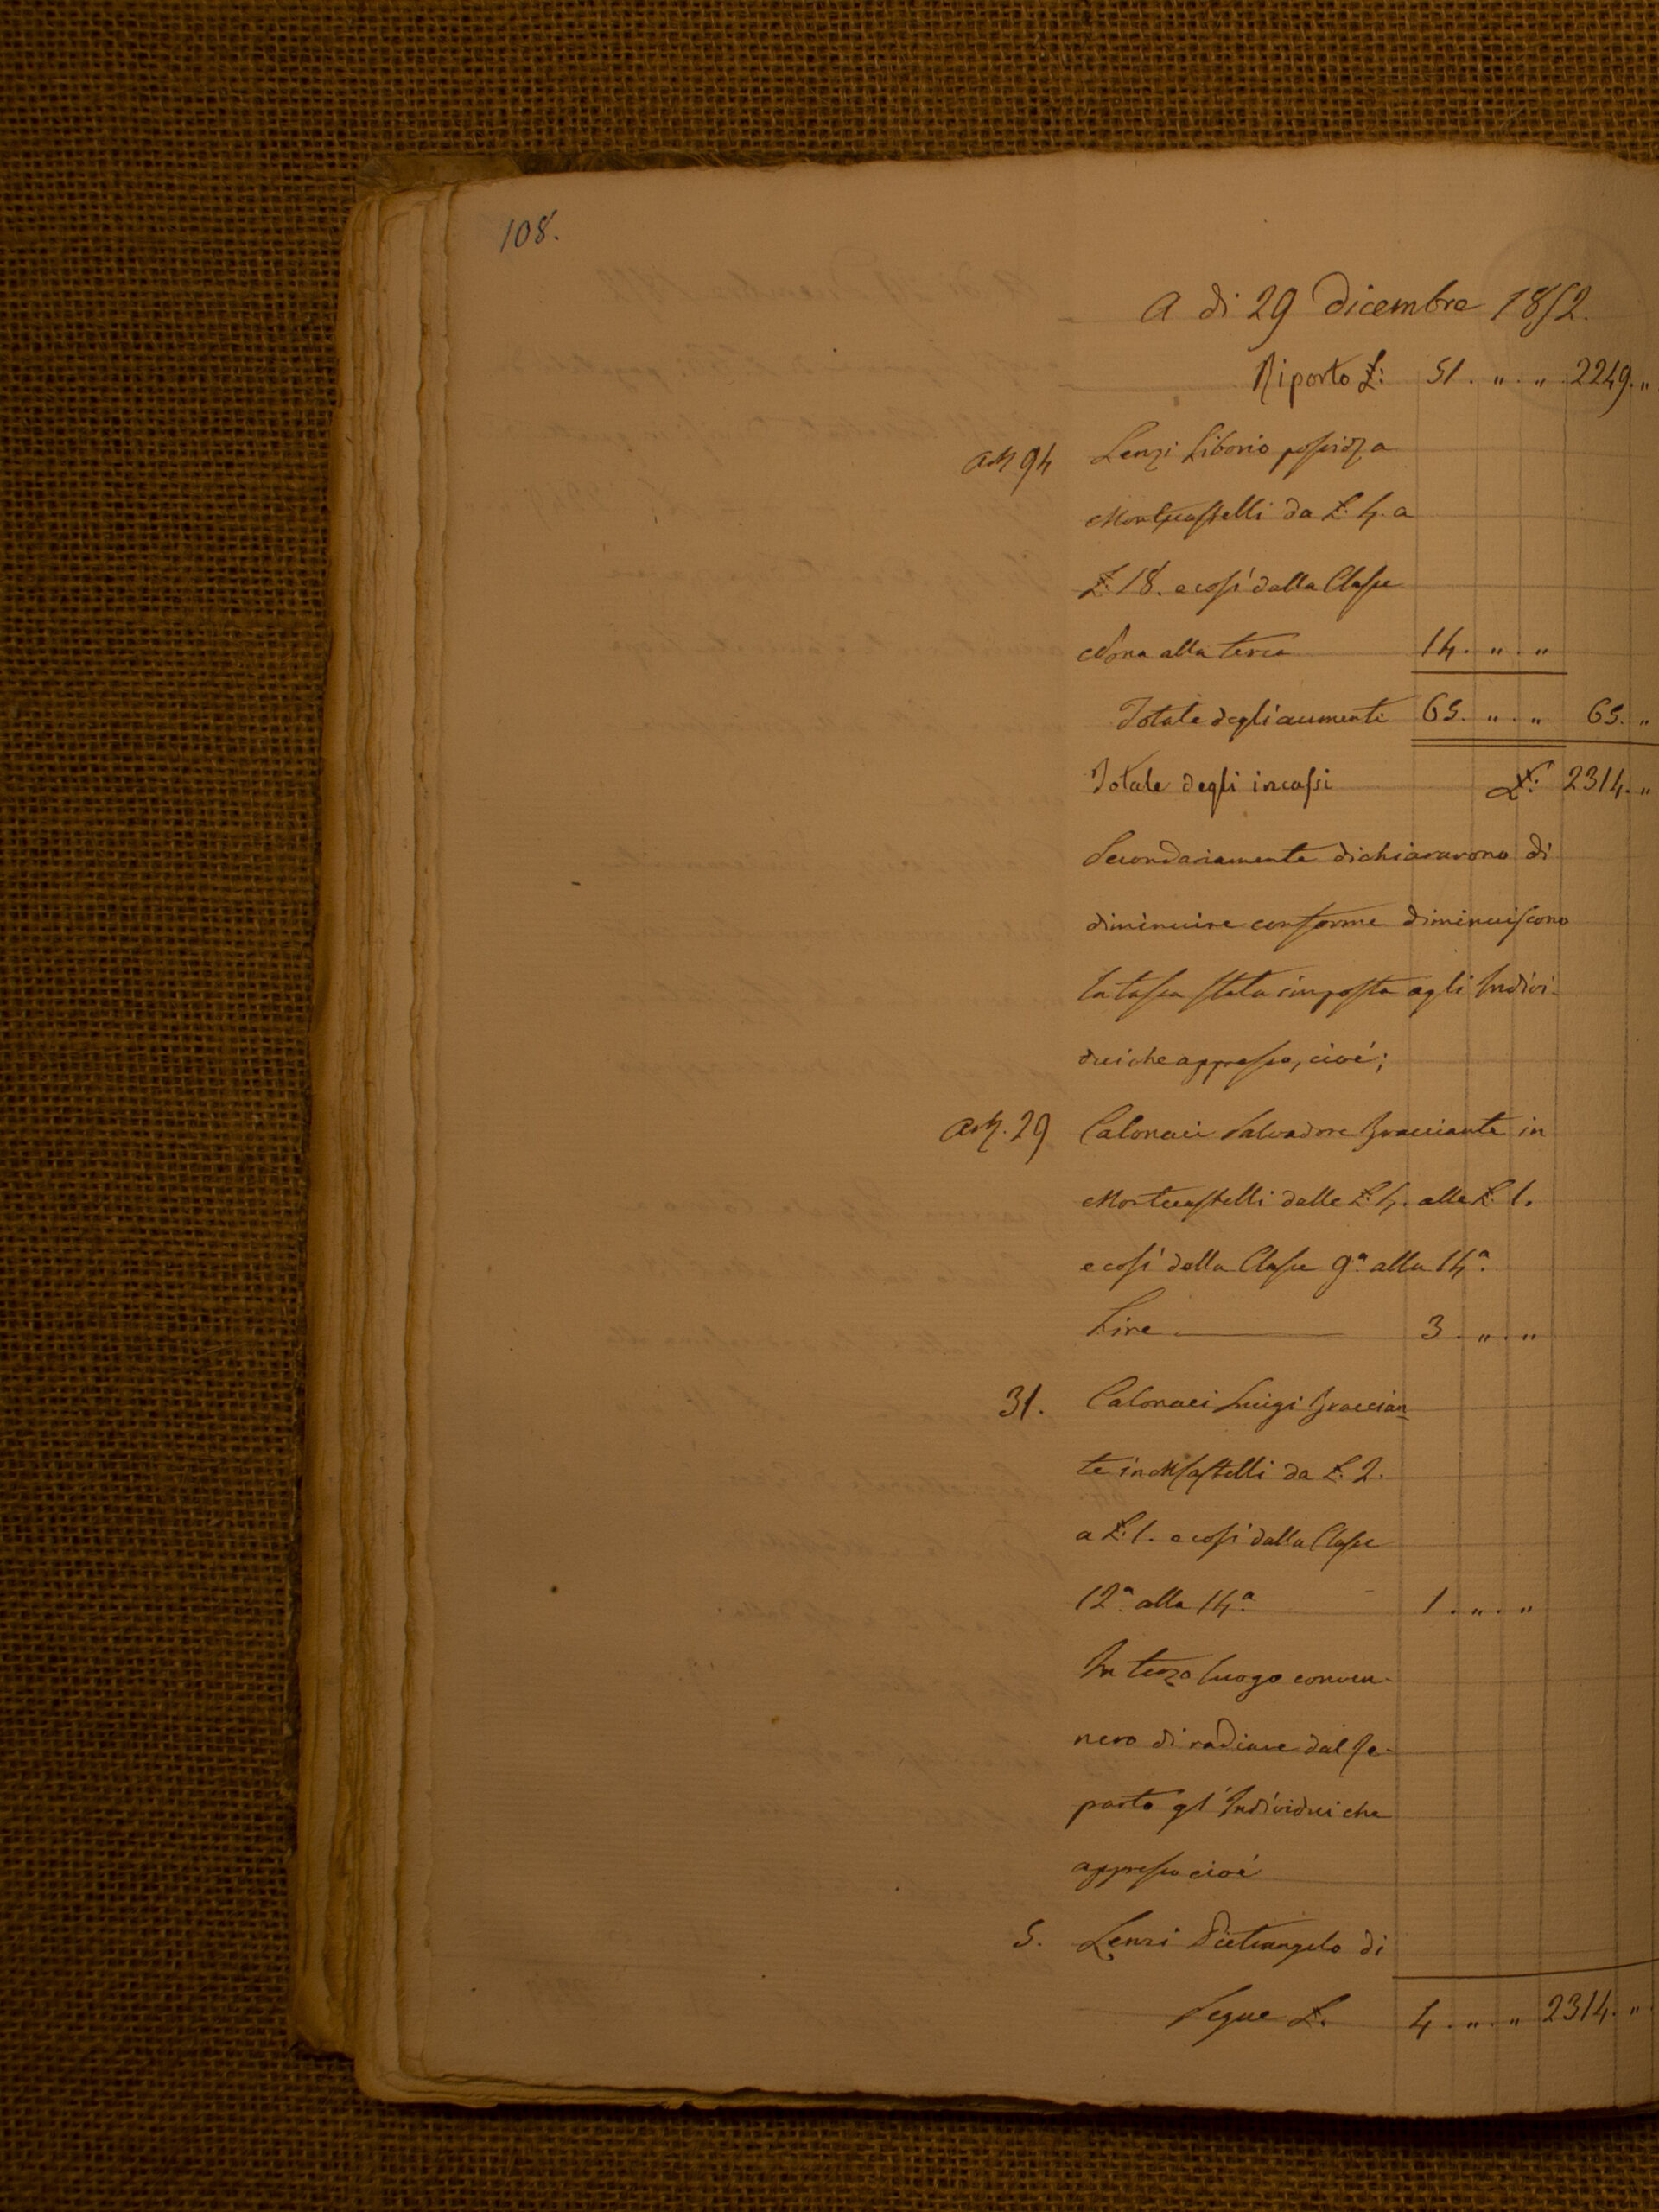 108.
A di 29 Dicembre 1852.
Riporto £: 51. " . " 2249. "
Art 94 Lenzi Liborio possid. a
Montecastelli da £. 4. a
£. 18. e così dalla Classe
Nona alla terza 14. " . "
Totale degli aumenti 65. " . " 65. "
Totale degli incassi £: 2314. "
Secondariamente dichiararono di
diminuire conforme diminuiscono
la tassa stata imposta agli Indivi-
dui che appresso, cioé;
Art. 29 Calonaci Salvadore Bracciante in
Montecastelli dalle £. 4. alle £. 1.
e così dalla Classe 9ª alla 14ª.
Lire 3. " . "
31. Calonaci Luigi Braccian-
te in MCastelli da £. 2.
a £. 1. e così dalla Classe
12ª. alla 14ª. 1. " . "
In terzo luogo conven-
nero di radiare dal Re-
parto gl'Individui che
appresso cioé
5. Lenzi Pietrangelo di
Segue £. 4. " . " 2314. "